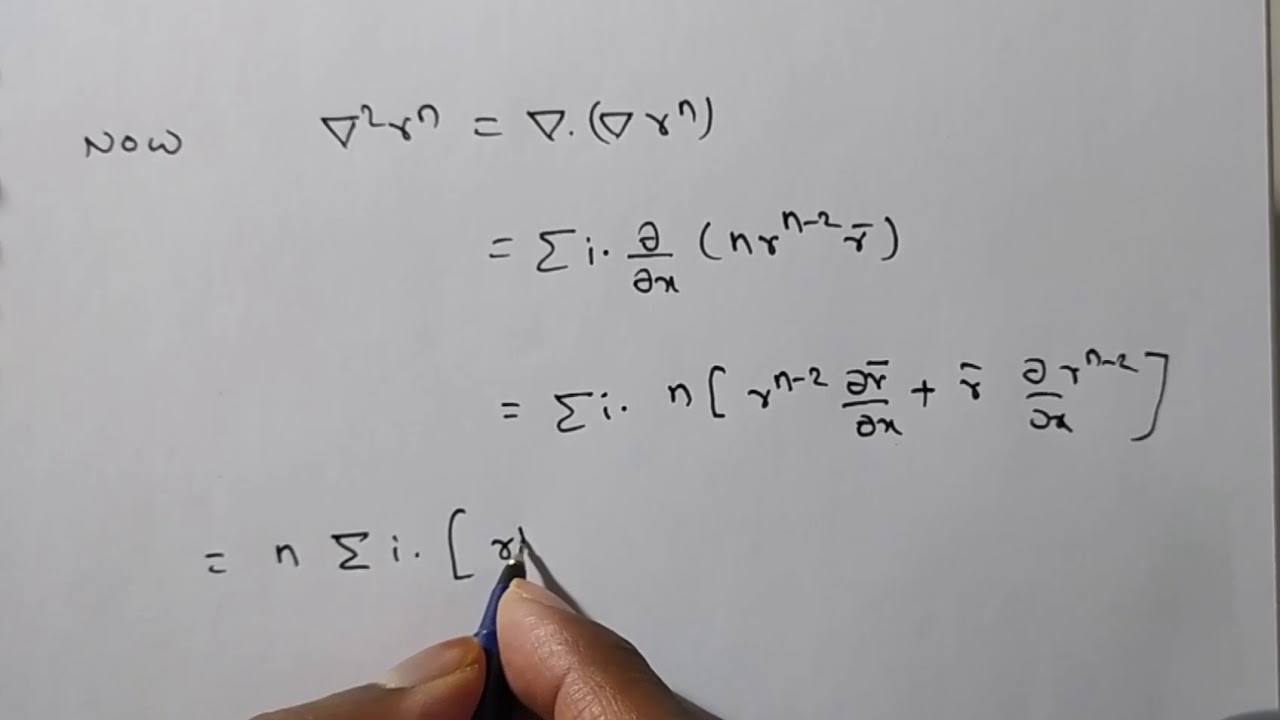 NOW ∇²rⁿ = ∇.(∇ rⁿ)
= Σ i. ∂/∂x (n rⁿ⁻² r̄)
= Σ i. n [ rⁿ⁻² ∂r̄/∂x + r̄ ∂/∂x rⁿ⁻² ]
= n Σ i. [ r